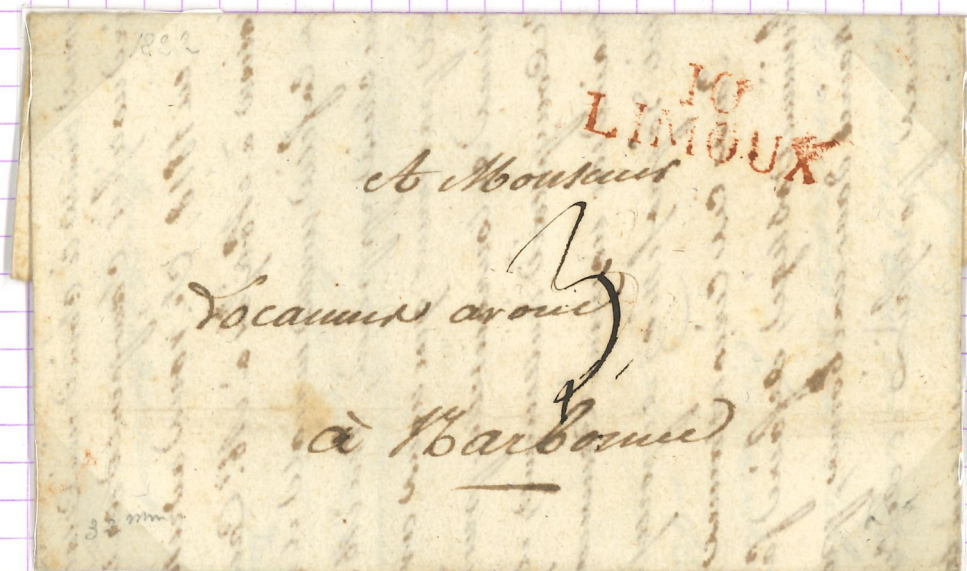 1822
10
LIMOUX
A Monsieur
3
avoué
à Narbonne